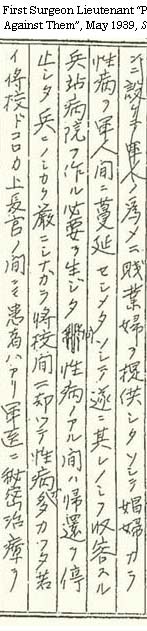 First Surgeon Lieutenant “P
Against Them”, May 1939, S
ンニ設ケテ軍人ノ為メニ賤業婦ヲ提供シタソシテ娼婦カラ
性病ヲ軍人間ニ蔓延セシメタソシテ遂ニ其レノミヲ収容スル
兵站病院ヲ作ル必要ヲ生シタ 性病ノアル間ハ帰還ヲ停
止シタ兵ニシカク厳ニシ乍ラ将校間ニ却ツテ性病多カツタ若
イ将校ドコロカ上長官ノ間ニモ患者ハアリ軍医ニ秘密治療ヲ